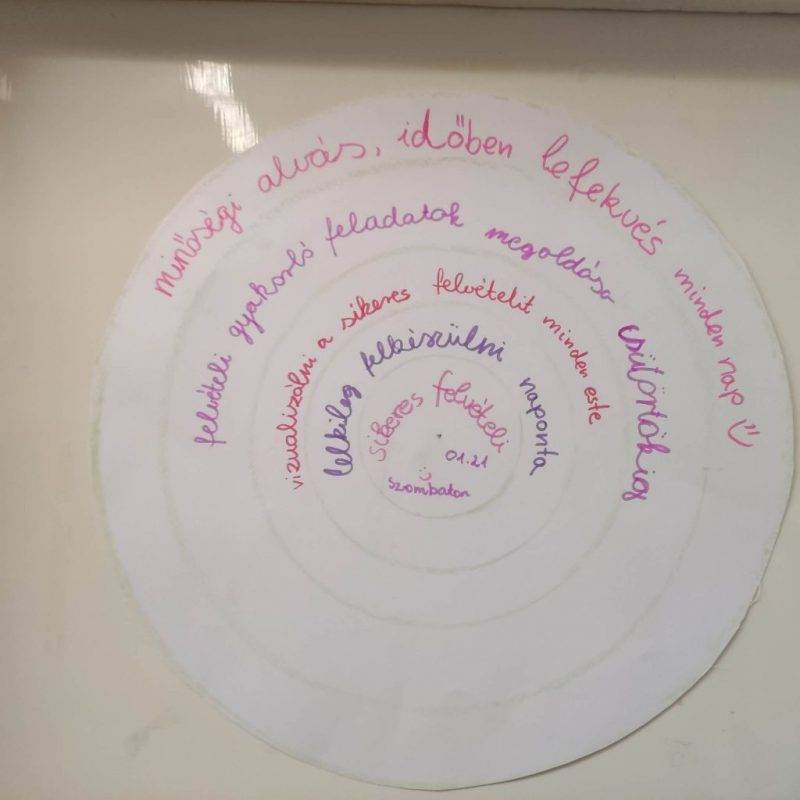 minőségi alvás, időben lefekvés minden nap
felvételi gyakorló feladatok megoldása csütörtökig
vizualizálni a sikeres felvételit minden este
lelkileg felkészülni naponta
sikeres felvételi
01.21
szombaton